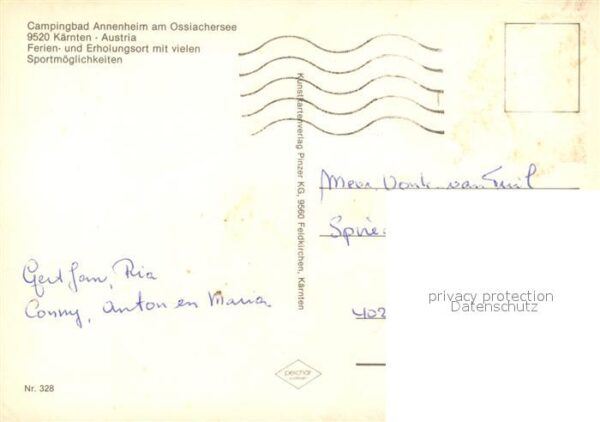 Campingbad Annenheim am Ossiachersee
9520 Kärnten · Austria
Ferien- und Erholungsort mit vielen
Sportmöglichkeiten
Kunstkartenverlag Pinzer KG, 9560 Feldkirchen, Kärnten
Gert Jan, Ria
Conny, Anton en Maria
Nr. 328
privacy protection
Datenschutz